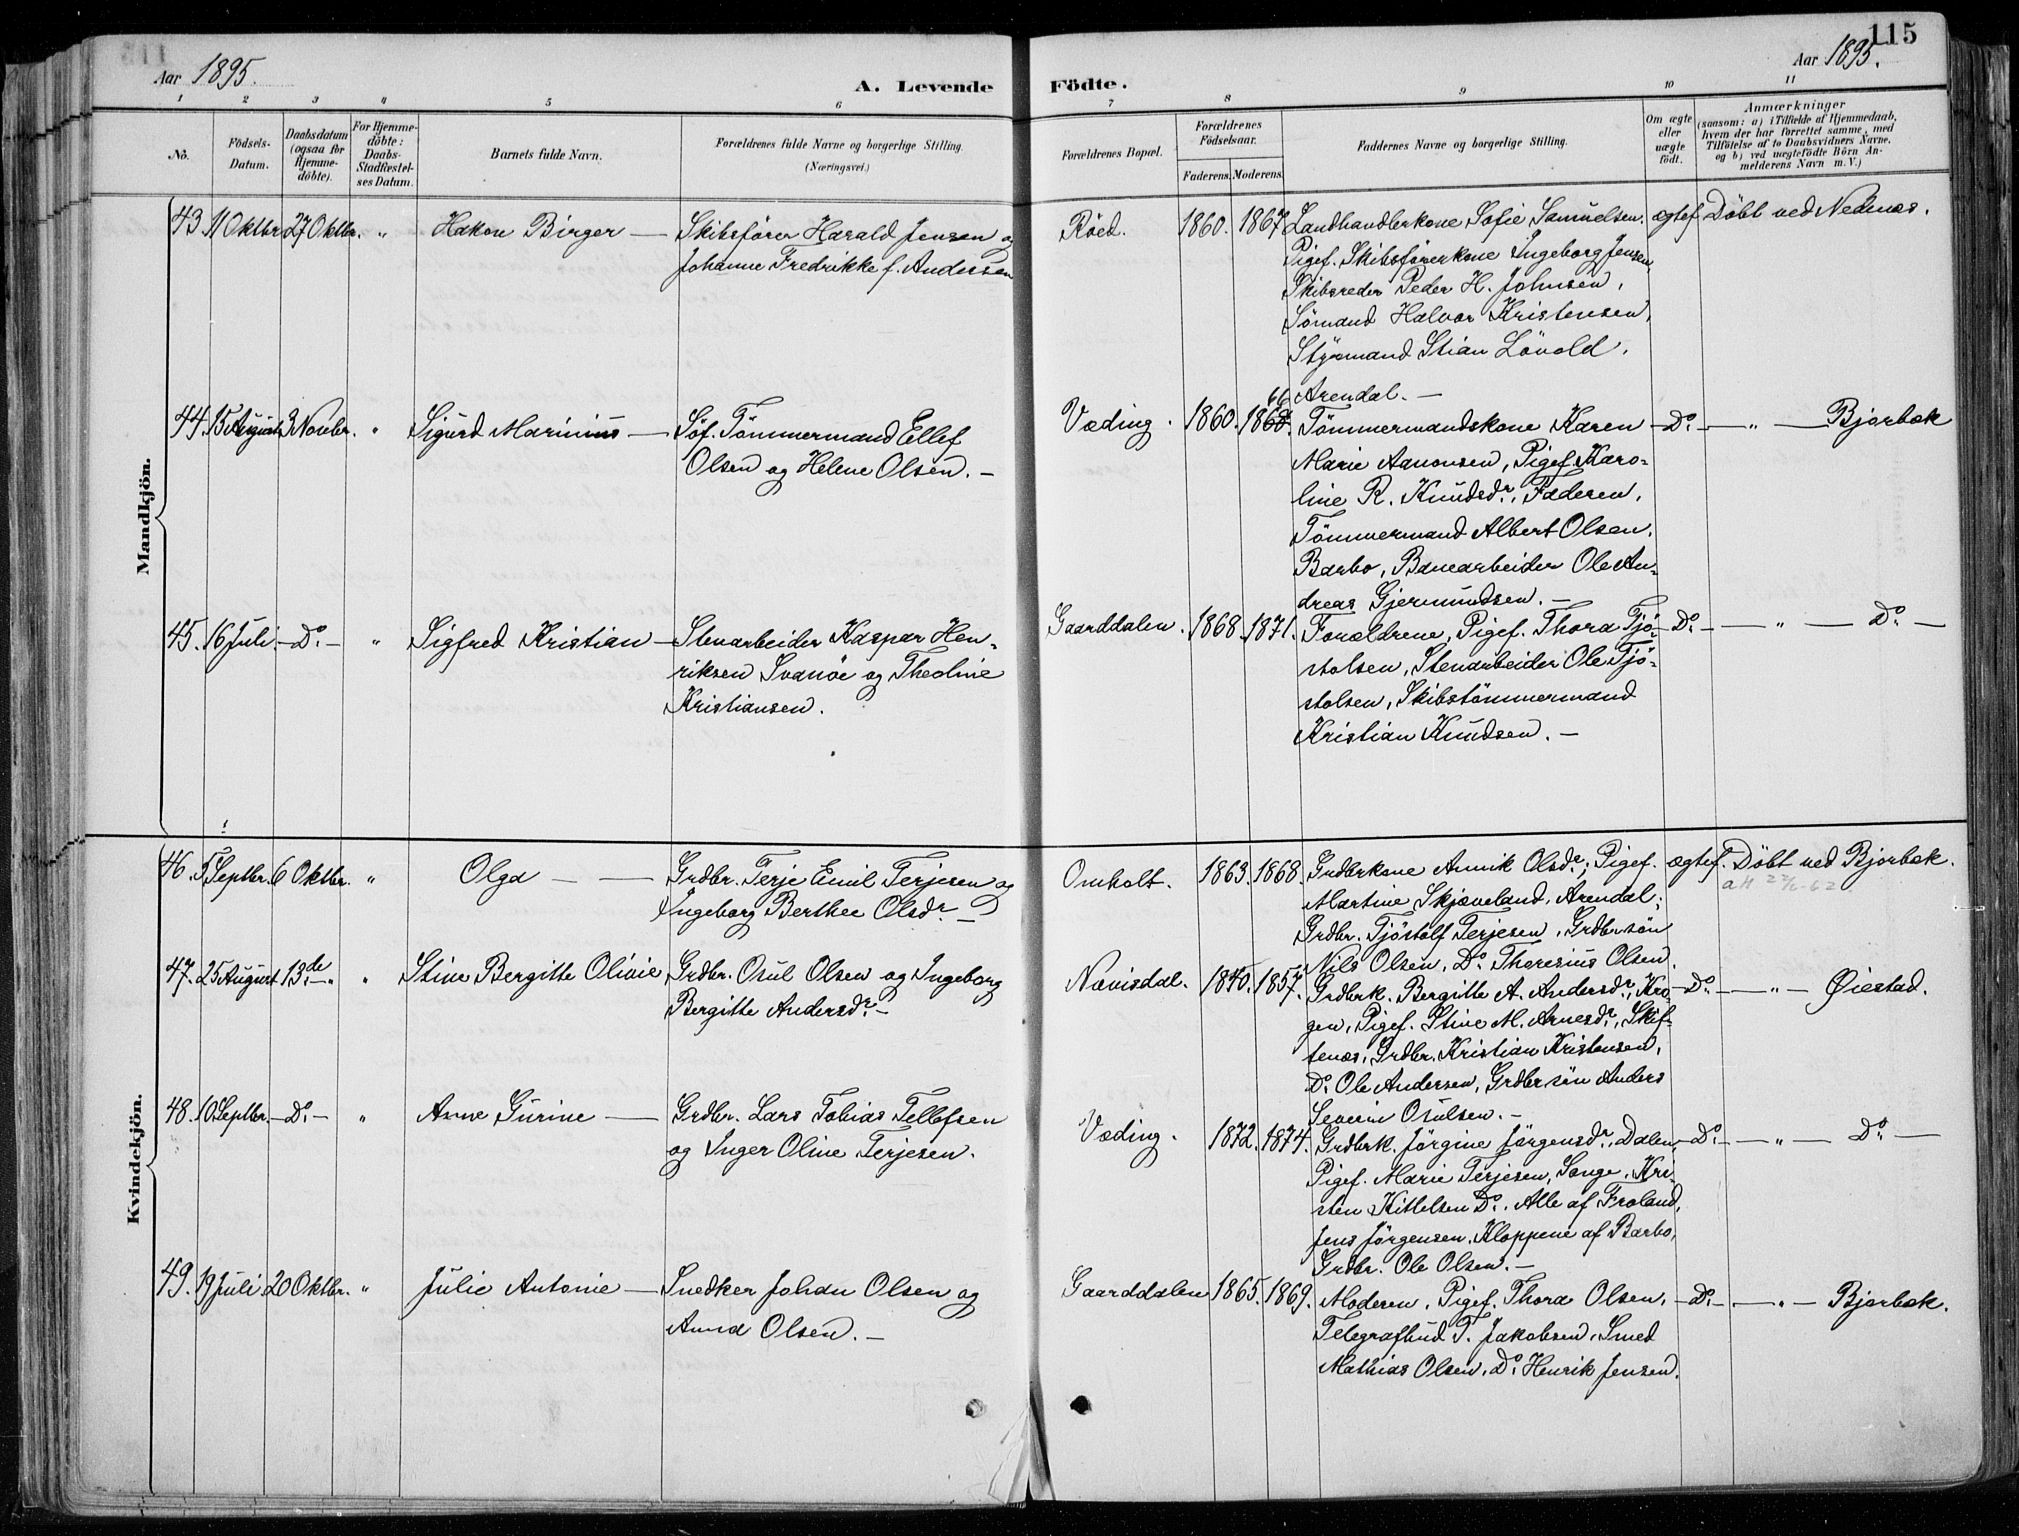 115
Aar 1895.
A. Levende
Födte.
Aar 1895.
1 2 3 4 5 6 7 8 9 10 11
No.
Födsels-
Datum.
Daabsdatum
(ogsaa for
Hjemme-
döbte).
For Hjemme-
döbte:
Daabs-
Stadfæstel-
ses Datum.
Barnets fulde Navn.
Forældrenes fulde Navne og borgerlige Stilling.
(Næringsvei.)
Forældrenes Bopæl.
Forældrenes
Födselsaar.
Faderens.
Moderens.
Faddernes Navne og borgerlige Stilling.
Om ægte
eller
uægte
födt.
Anmærkninger
(saasom: a) i Tilfælde af Hjemmedaab,
hvem der har forrettet samme, med
Tilföielse af to Daabsvidners Navne,
og b) ved uægtefödte Börn An-
melderens Navn m. V.)
Mandkjön.
43. 11 Oktbr. 27 Oktbr. " Hakon Birger —
Skibsfører Harald Jensen og
Johanne Fredrikke f. Andersen
Röed. 1860. 1867
Landhandlerkone Sofie Samuelsen.
Pigef. Skibsførerkone Ingeborg Jensen,
Skibsreder Peder H. Johnsen,
Sömand Halvor Kristensen,
Styrmand Stian Lövold,
Arendal. —
ægtef. Döbt ved Nedenæs.
44. 15 August 3 Novbr. " Sigurd Marinius —
Søf. Tömmermand Ellef
Olsen og Helene Olsen. —
Væding. 1860. 1868. 66
Tömmermandskone Karen
Marie Aanonsen, Pigef. Karo-
line R. Knudsdr., Faderen,
Tömmermand Albert Olsen,
Barbo, Banearbeider Ole An-
dreas Gjermundsen. —
— Do. — " — Bjorbæk
45. 16 Juli. — Do. — " Sigfred Kristian —
Stenarbeider Kaspar Hen-
riksen Svanöe og Theoline
Kristiansen.
Gaarddalen. 1868. 1871.
Forældrene, Pigef. Thora Tjö-
stolsen, Stenarbeider Ole Tjö-
stolsen, Skibstömmermand
Kristian Knudsen. —
— Do. — " — Do. —
Kvindekjön.
46. 5 Septbr. 6 Oktbr. " Olga — —
Grdbr. Terje Emil Terjesen og
Ingeborg Berthee Olsdr. —
Omholt. 1863. 1868.
Grdbrkone Annik Olsdr.; Pigef.
Martine Skjæveland, Arendal;
Grdbr. Tjöstolf Terjesen, Grdbrsön
Nils Olsen, Do. Theresius Olsen.
ægtef. Döbt ved Bjorbæk.
47. 25 August 13. de — " Stine Bergitte Olivie
Grdbr. Osul Olsen og Ingeborg
Bergitte Andersdr. —
Nævisdal. 1840. 1857.
Grdbrk. Bergitte A. Andersdr., Kro-
gen, Pigef. Stine M. Arnesdr., Skif-
tenæs, Grdbr. Kristian Kristensen,
Do. Ole Andersen, Grdbrsön Anders
Severin Osulsen. —
— Do. — " — Øiestad.
48. 10. Septbr. — Do. — " Anne Gurine —
Grdbr. Lars Tobias Tellefsen
og Inger Oline Terjesen.
Væding. 1872. 1874.
Grdbrk. Jörgine Jörgensdr., Dalen,
Pigef. Marie Terjesen, Songe, Kri-
sten Kittelsen Do. Alle af Froland,
Jens Jörgensen, Kloppene af Barbo,
Grdbr. Ole Olsen. —
— Do. — " — Do. —
49. 19 Juli 20 Oktbr. " Julie Antonie —
Snedker Johan Olsen og
Anna Olsen. —
Gaarddalen 1865. 1869.
Moderen, Pigef. Thora Olsen,
Telegrafbud T. Jakobsen, Smed
Mathias Olsen, Do. Henrik Jensen.
— Do. — " — Bjorbæk.